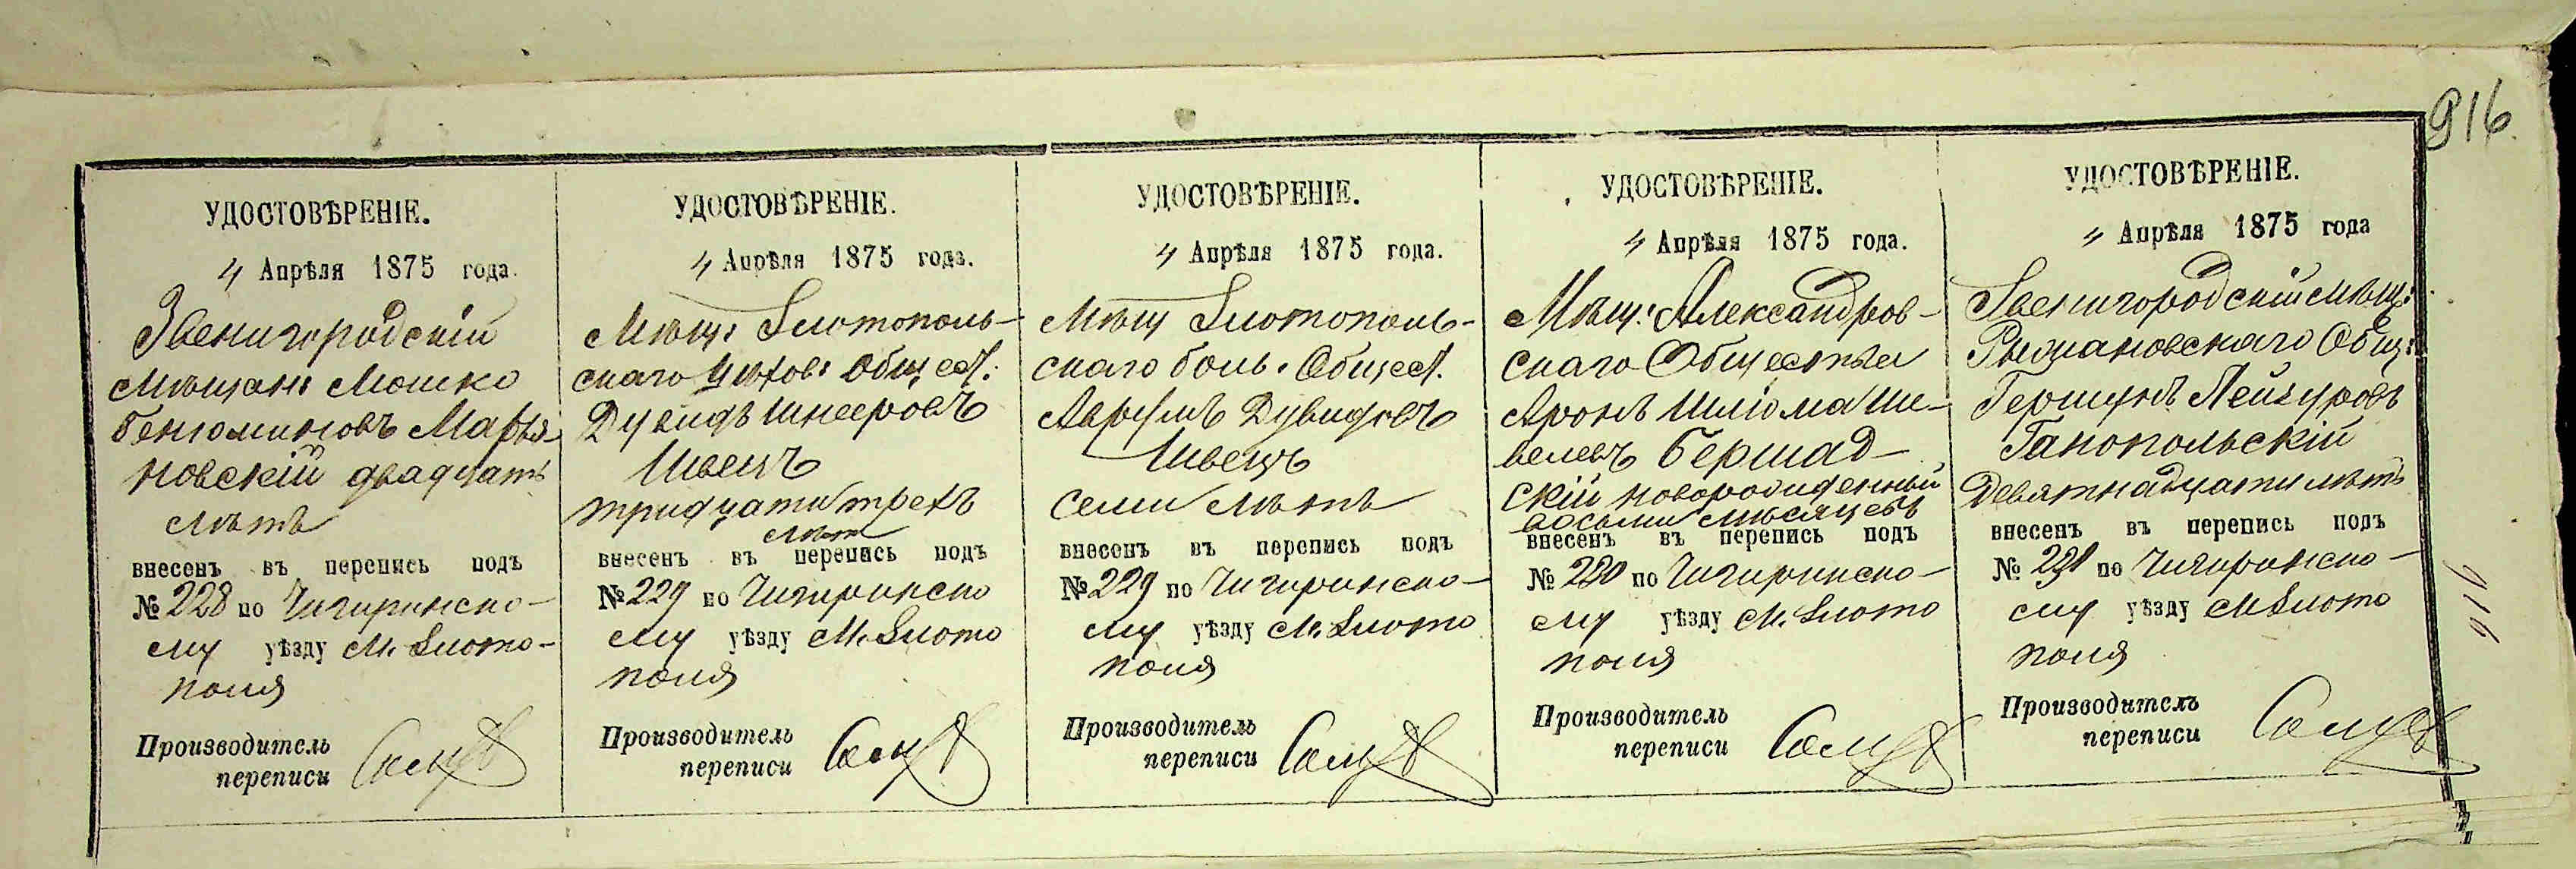 916
УДОСТОВѢРЕНІЕ.
4 Апрѣля 1875 года.
Звенигородскій
мѣщан: Мошко
Беніоминовъ Марья-
новскій двадцать
лѣтъ
внесенъ въ перепись подъ
№ 228 по Чигиринско-
му уѣзду М. Злото-
поля
Производитель
переписи
УДОСТОВѢРЕНІЕ.
4 Апрѣля 1875 года.
Мѣщ: Златополь-
скаго Цехов: Общест:
Дувидъ Шнееровъ
Швецъ
тридцати трехъ
лѣт
внесенъ въ перепись подъ
№ 229 по Чигиринско
му уѣзду М. Злото
поля
Производитель
переписи
УДОСТОВѢРЕНІЕ.
4 Апрѣля 1875 года.
Мѣщ Злотополь-
скаго боль. Общест.
Аврумъ Дувидовъ
Швецъ
семи лѣтъ
внесенъ въ перепись подъ
№ 229 по Чигиринско-
му уѣзду М. Злото
поля
Производитель
переписи
УДОСТОВѢРЕНІЕ.
4 Апрѣля 1875 года.
Мѣщ: Александров-
скаго Общества
Аронъ Шліома Ше-
велевъ Бершад-
скій новорожденный
восьми мѣсяцевъ
внесенъ въ перепись подъ
№ 230 по Чигиринско-
му уѣзду М. Злото
поля
Производитель
переписи
УДОСТОВѢРЕНІЕ.
4 Апрѣля 1875 года
Звенигородскій мѣщ:
Рыжановскаго Общ:
Гершунъ Лейзуровъ
Ганопольскій
Девятнадцати лѣтъ
внесенъ въ перепись подъ
№ 231 по Чигиринско-
му уѣзду М Злото
поля
Производитель
переписи
916